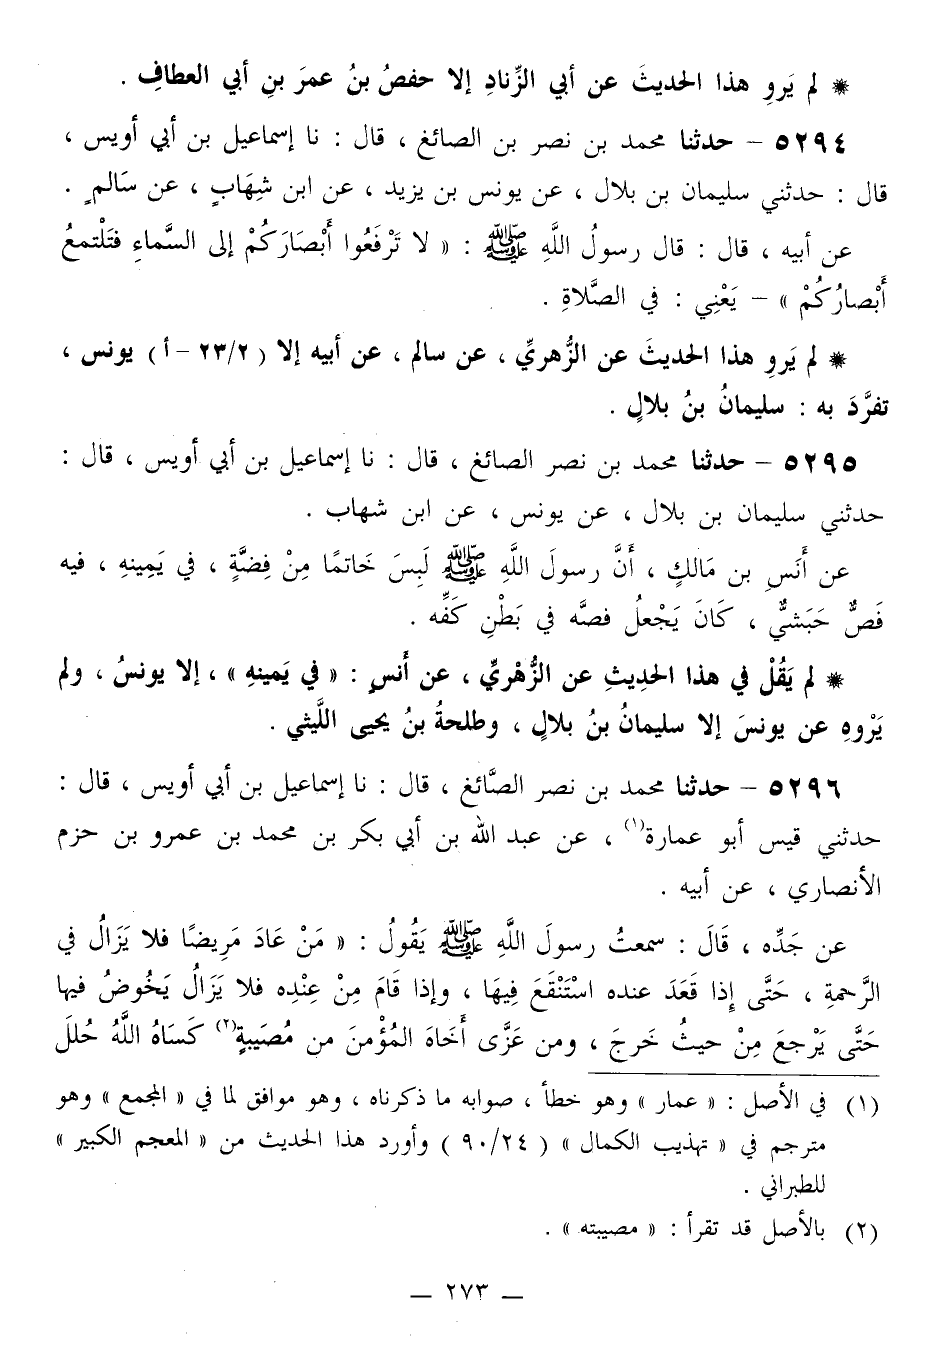 * لم يَروِ هذا الحديثَ عن أبي الزِّنادِ إلا حفصُ بنُ عمرَ بنِ أبي العطافِ .
٥٢٩٤ – حدثنا محمد بن نصر بن الصائغ ، قال : نا إسماعيل بن أبي أويس ،
قال : حدثني سليمان بن بلال ، عن يونس بن يزيد ، عن ابن شِهَابٍ ، عن سَالمٍ .
عن أبيه ، قال : قال رسولُ اللَّهِ ﷺ : « لا تَرْفَعُوا أَبْصَارَكُمْ إلى السَّماءِ فتَلْتمعُ
أَبْصارُكُمْ » – يَعْنِي : في الصَّلاةِ .
* لم يَروِ هذا الحديثَ عن الزُّهريِّ ، عن سالم ، عن أبيه إلا ( ٢٣/٢ – أ ) يونس ،
تفرَّدَ به : سليمانُ بنُ بلالٍ .
٥٢٩٥ – حدثنا محمد بن نصر الصائغ ، قال : نا إسماعيل بن أبي أويس ، قال :
حدثني سليمان بن بلال ، عن يونس ، عن ابن شهاب .
عن أَنَسِ بن مَالكٍ ، أَنَّ رسولَ اللَّهِ ﷺ لَبِسَ خَاتمًا مِنْ فِضَّةٍ ، في يَمِينهِ ، فيه
فَصٌّ حَبَشيٌّ ، كَانَ يَجْعلُ فصَّه في بَطْنِ كَفِّه .
* لم يَقُلْ في هذا الحدِيثِ عن الزُّهْريِّ ، عن أَنسٍ : « في يَمينهِ » ، إلا يونسُ ، ولم
يَرْوهِ عن يونسَ إلا سليمانُ بنُ بلالٍ ، وطلحةُ بنُ يحيى اللَّيثي .
٥٢٩٦ – حدثنا محمد بن نصر الصَّائغ ، قال : نا إسماعيل بن أبي أويس ، قال :
حدثني قيس أبو عمارة(١) ، عن عبد الله بن أبي بكر بن محمد بن عمرو بن حزم
الأنصاري ، عن أبيه .
عن جَدِّه ، قَالَ : سمعتُ رسولَ اللَّهِ ﷺ يَقُولُ : « مَنْ عَادَ مَرِيضًا فلا يَزَالُ في
الرَّحمةِ ، حَتَّى إِذا قَعَدَ عنده اسْتَنْقَعَ فِيهَا ، وإذا قَامَ مِنْ عِنْده فلا يَزَالُ يَخُوضُ فيها
حَتَّى يَرْجعَ مِنْ حيثُ خَرجَ ، ومن عَزَّى أَخَاهَ المُؤْمنَ من مُصَيبةٍ(٢) كَسَاهُ اللَّهُ حُللَ
(١) في الأصل : « عمار » وهو خطأ ، صوابه ما ذكرناه ، وهو موافق لما في « المجمع » وهو
مترجم في « تهذيب الكمال » ( ٩٠/٢٤ ) وأورد هذا الحديث من « المعجم الكبير »
للطبراني .
(٢) بالأصل قد تقرأ : « مصيبته » .
– ٢٧٣ –